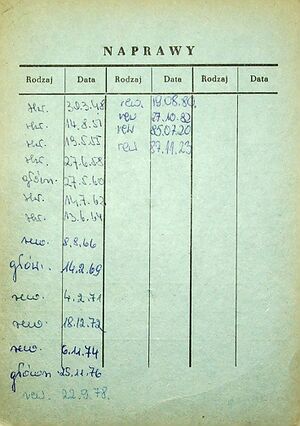 NAPRAWY
Rodzaj Data Rodzaj Data Rodzaj Data
rew. 3.03.48 rew. 19.08.80.
rew. 14.8.51 rew 27.10.82
rew. 19.5.55 rew 85.07.20
rew. 27.6.58 rew 87.11.23
główn. 27.5.60
rew. 11.7.62
rew. 13.6.64
rew. 8.8.66
główn. 14.2.69
rew. 4.2.71
rew. 18.12.72
rew. 6.11.74
główn 25.11.76
rew. 22.9.78.